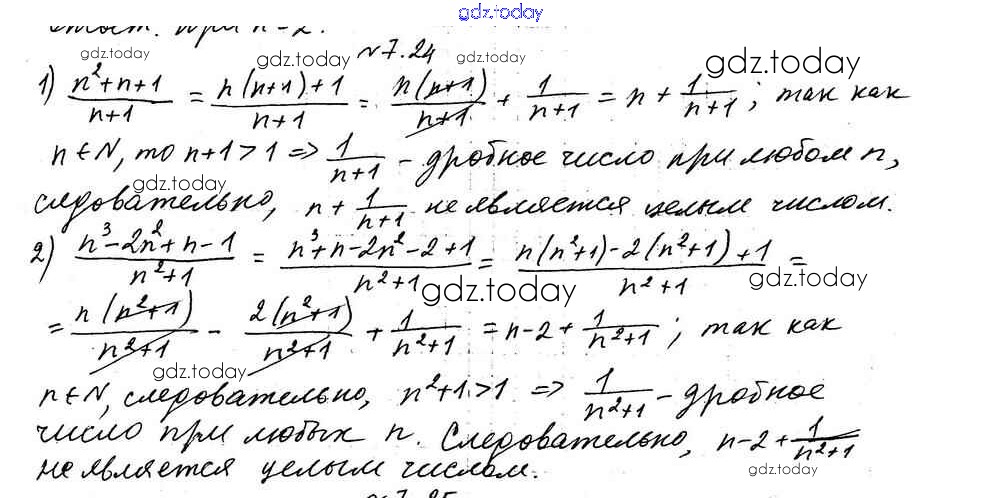 gdz.today
при n=2.
gdz.today
№7.24
gdz.today gdz.today
1) \frac{n^2+n+1}{n+1} = \frac{n(n+1)+1}{n+1} = \frac{n(n+1)}{n+1} + \frac{1}{n+1} = n + \frac{1}{n+1}; так как
gdz.today
n∈N, то n+1>1 => \frac{1}{n+1} - дробное число при любом n,
gdz.today gdz.today
следовательно, n + \frac{1}{n+1} не является целым числом.
2) \frac{n^3-2n^2+n-1}{n^2+1} = \frac{n^3+n-2n^2-2+1}{n^2+1} = \frac{n(n^2+1)-2(n^2+1)+1}{n^2+1} =
gdz.today
= \frac{n(n^2+1)}{n^2+1} - \frac{2(n^2+1)}{n^2+1} + \frac{1}{n^2+1} = n-2+\frac{1}{n^2+1}; так как
gdz.today
n∈N, следовательно, n^2+1>1 => \frac{1}{n^2+1} - дробное
число при любых n. Следовательно, n-2+\frac{1}{n^2+1}
gdz.today
не является целым числом.